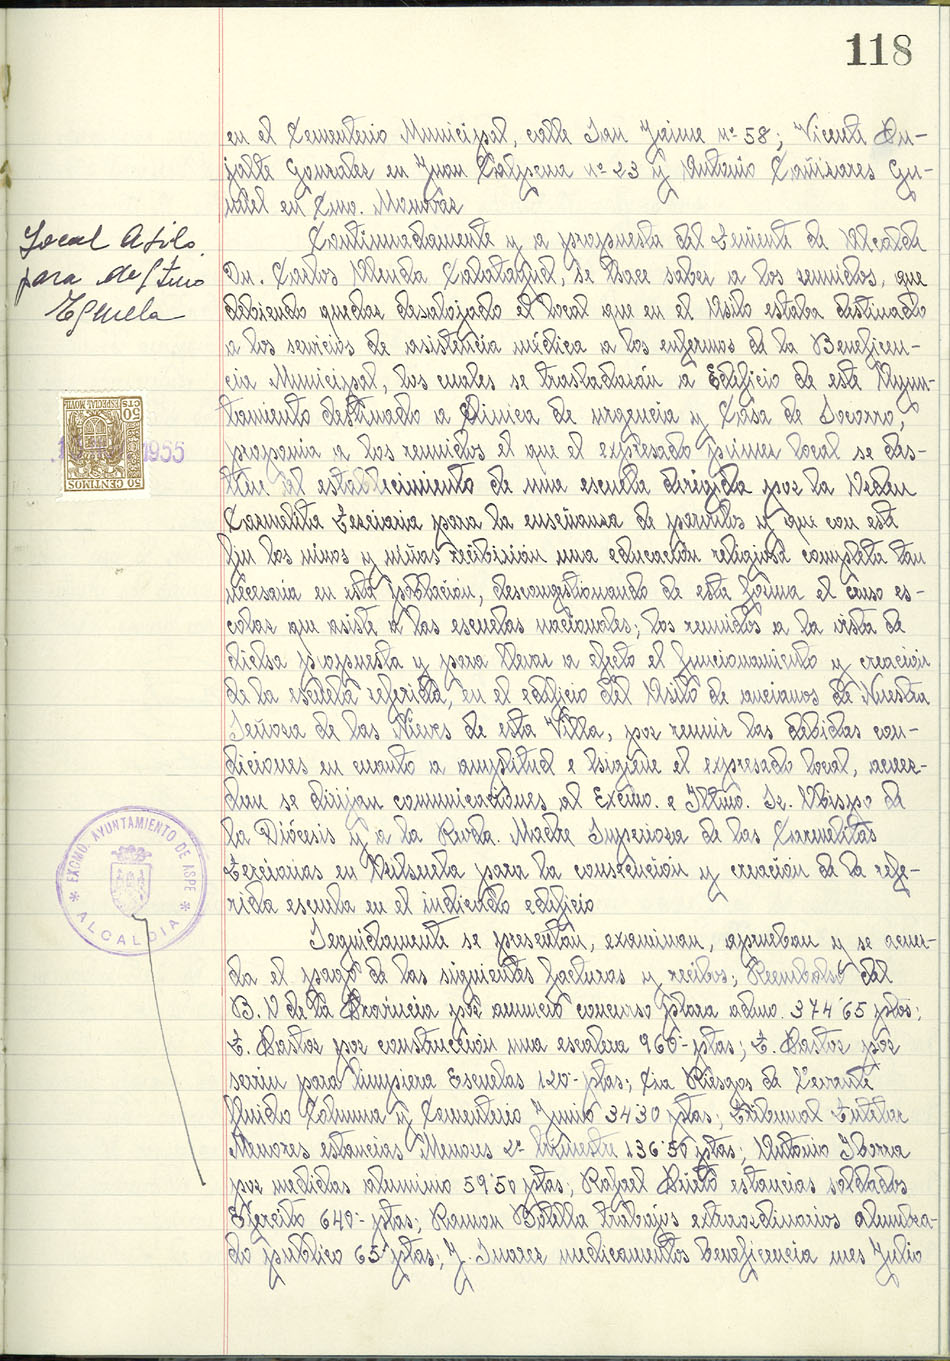 118
en el Cementerio Municipal, calle San Jaime nº 58; Vicente Pu-
jalte Gonzalez en Juan Calpena nº 23 y Antonio Cañizares Gu-
miel en Cno. Monovar
Local Asilo
para destino
Escuela
Continuadamente y a propuesta del Teniente de Alcalde
Dn. Carlos Calatayud, se hace saber a los reunidos, que
debiendo quedar desalojado el local que en el Asilo estaba destinado
a los servicios de asistencia médica a los enfermos de la Beneficen-
cia Municipal, los cuales se trasladarán a Edificio de este Ayun-
tamiento destinado a Clinica de urgencia y Casa de Socorro,
proponia a los reunidos el que el expresado primer local se des-
tine al establecimiento de una escuela dirigida por la Orden
Carmelita Terciaria para la enseñanza de parvulos y que con este
fin los niños y niñas recibirian una educación religiosa completa tan
necesaria en esta población, descongestionando de esta forma el censo es-
colar que asiste a las escuelas nacionales; los reunidos a la vista de
dicha propuesta y para llevar a efecto el funcionamiento y creación
de la escuela referida, en el edificio del Asilo de ancianos de Nuestra
Señora de las Nieves de esta Villa, por reunir las debidas con-
diciones en cuanto a amplitud e higiene el expresado local, acuer-
dan se dirijan comunicaciones al Excmo. e Iltmo. Sr. Obispo de
la Diócesis y a la Rvda. Madre Superiora de las Carmelitas
Terciarias en Orihuela para la consecución y creación de la refe-
rida escuela en el indicado edificio
Seguidamente se presentan, examinan, aprueban y se acuer-
da el pago de las siguientes facturas y recibos; Reembolso del
B. O de la Provincia por anuncio concurso plaza admo. 374'65 ptas;
T. Pastor por construcción una escalera 960'- ptas; T. Pastor por
serrin para limpieza Escuelas 120'- ptas; Cia Riegos de Levante
fluido Columna y Cementerio Junio 34'30 ptas; Tribunal Tutelar
Menores estancias Menores 2º trimestre 136'50 ptas; Antonio Iborra
por medidas aluminio 59'50 ptas; Rafael estancias soldados
Ejercito 640'- ptas; Ramon Botella trabajos extraordinarios alumbra-
do publico 65 ptas; J. Suarez medicamentos beneficencia mes Julio
50 CENTIMOS
ESPECIAL MOVIL
50 CTS
1955
EXCMO. AYUNTAMIENTO DE ASPE
* ALCALDIA *